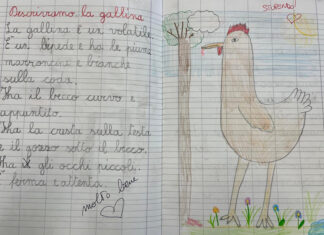 Descriviamo la gallina
La gallina è un volatile.
È un bipede e ha le piume
marroncine e bianche
sulla coda.
Ha il becco curvo e
appuntito.
Ha la cresta sulla testa
e il gozzo sotto il becco.
Ha gli occhi piccoli.
È ferma e attenta.
molto bene
STUPENDO!